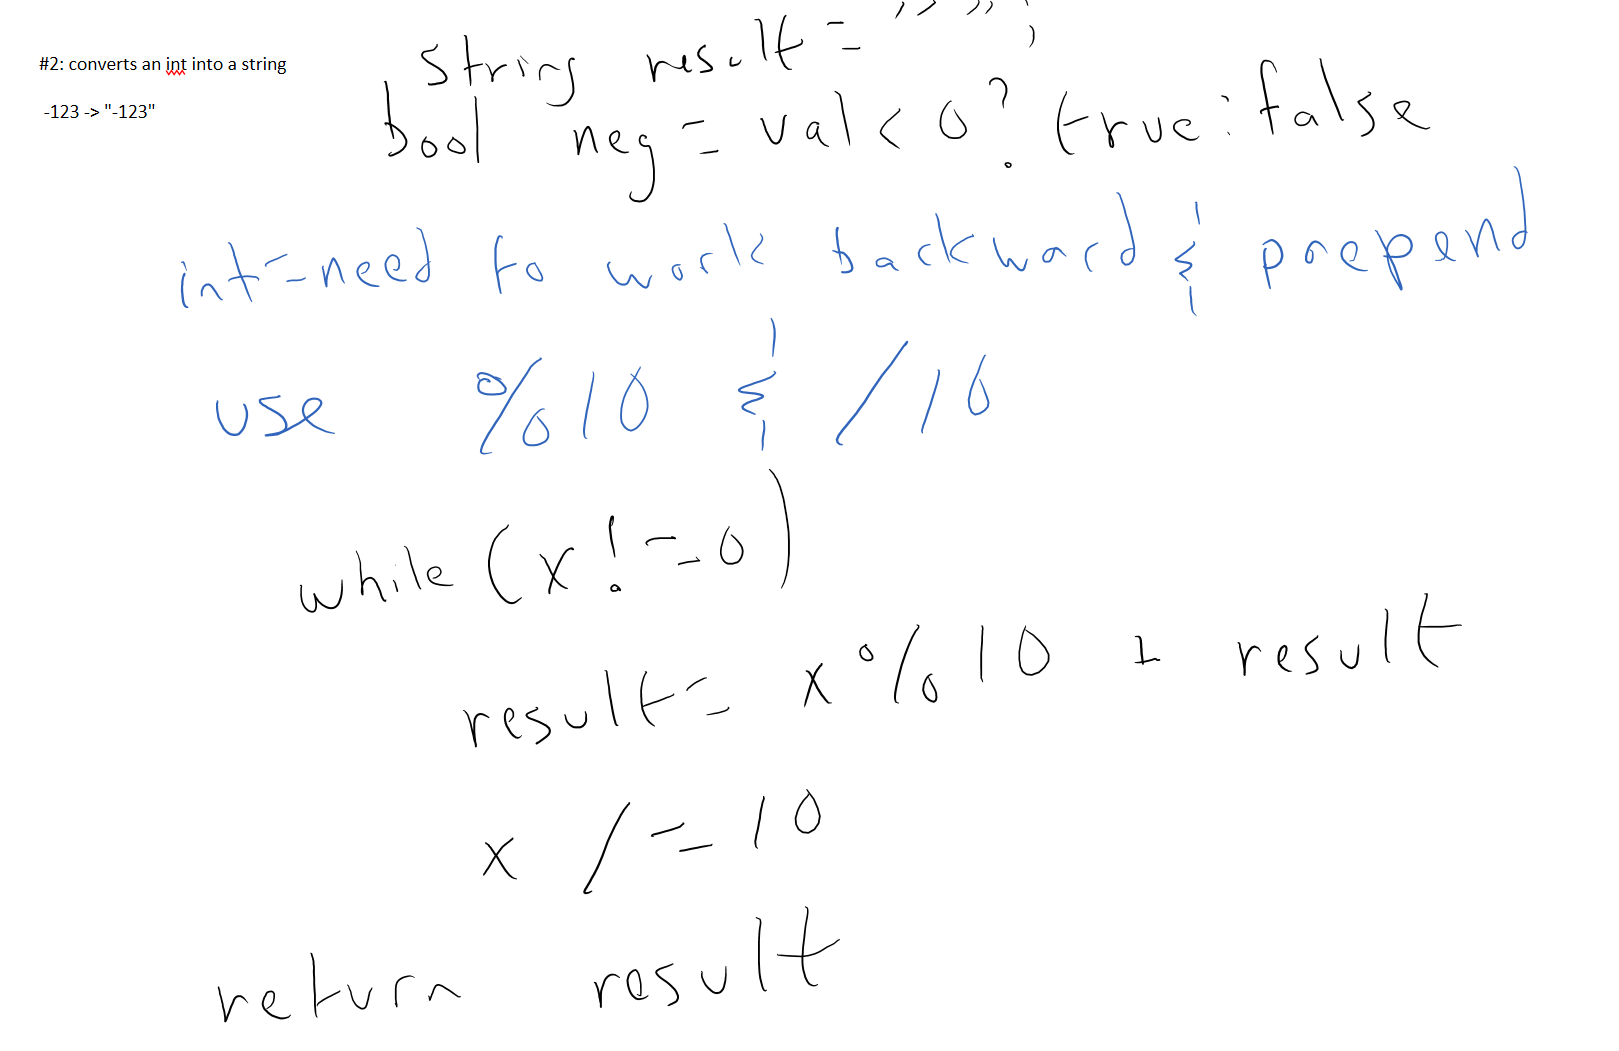 #2: converts an int into a string
-123 -> "-123"
string result = "";
bool neg = val < 0? true: false
int = need to work backward & prepend
use %10 & /10
while (x != 0)
result = x % 10 + result
x /= 10
return result